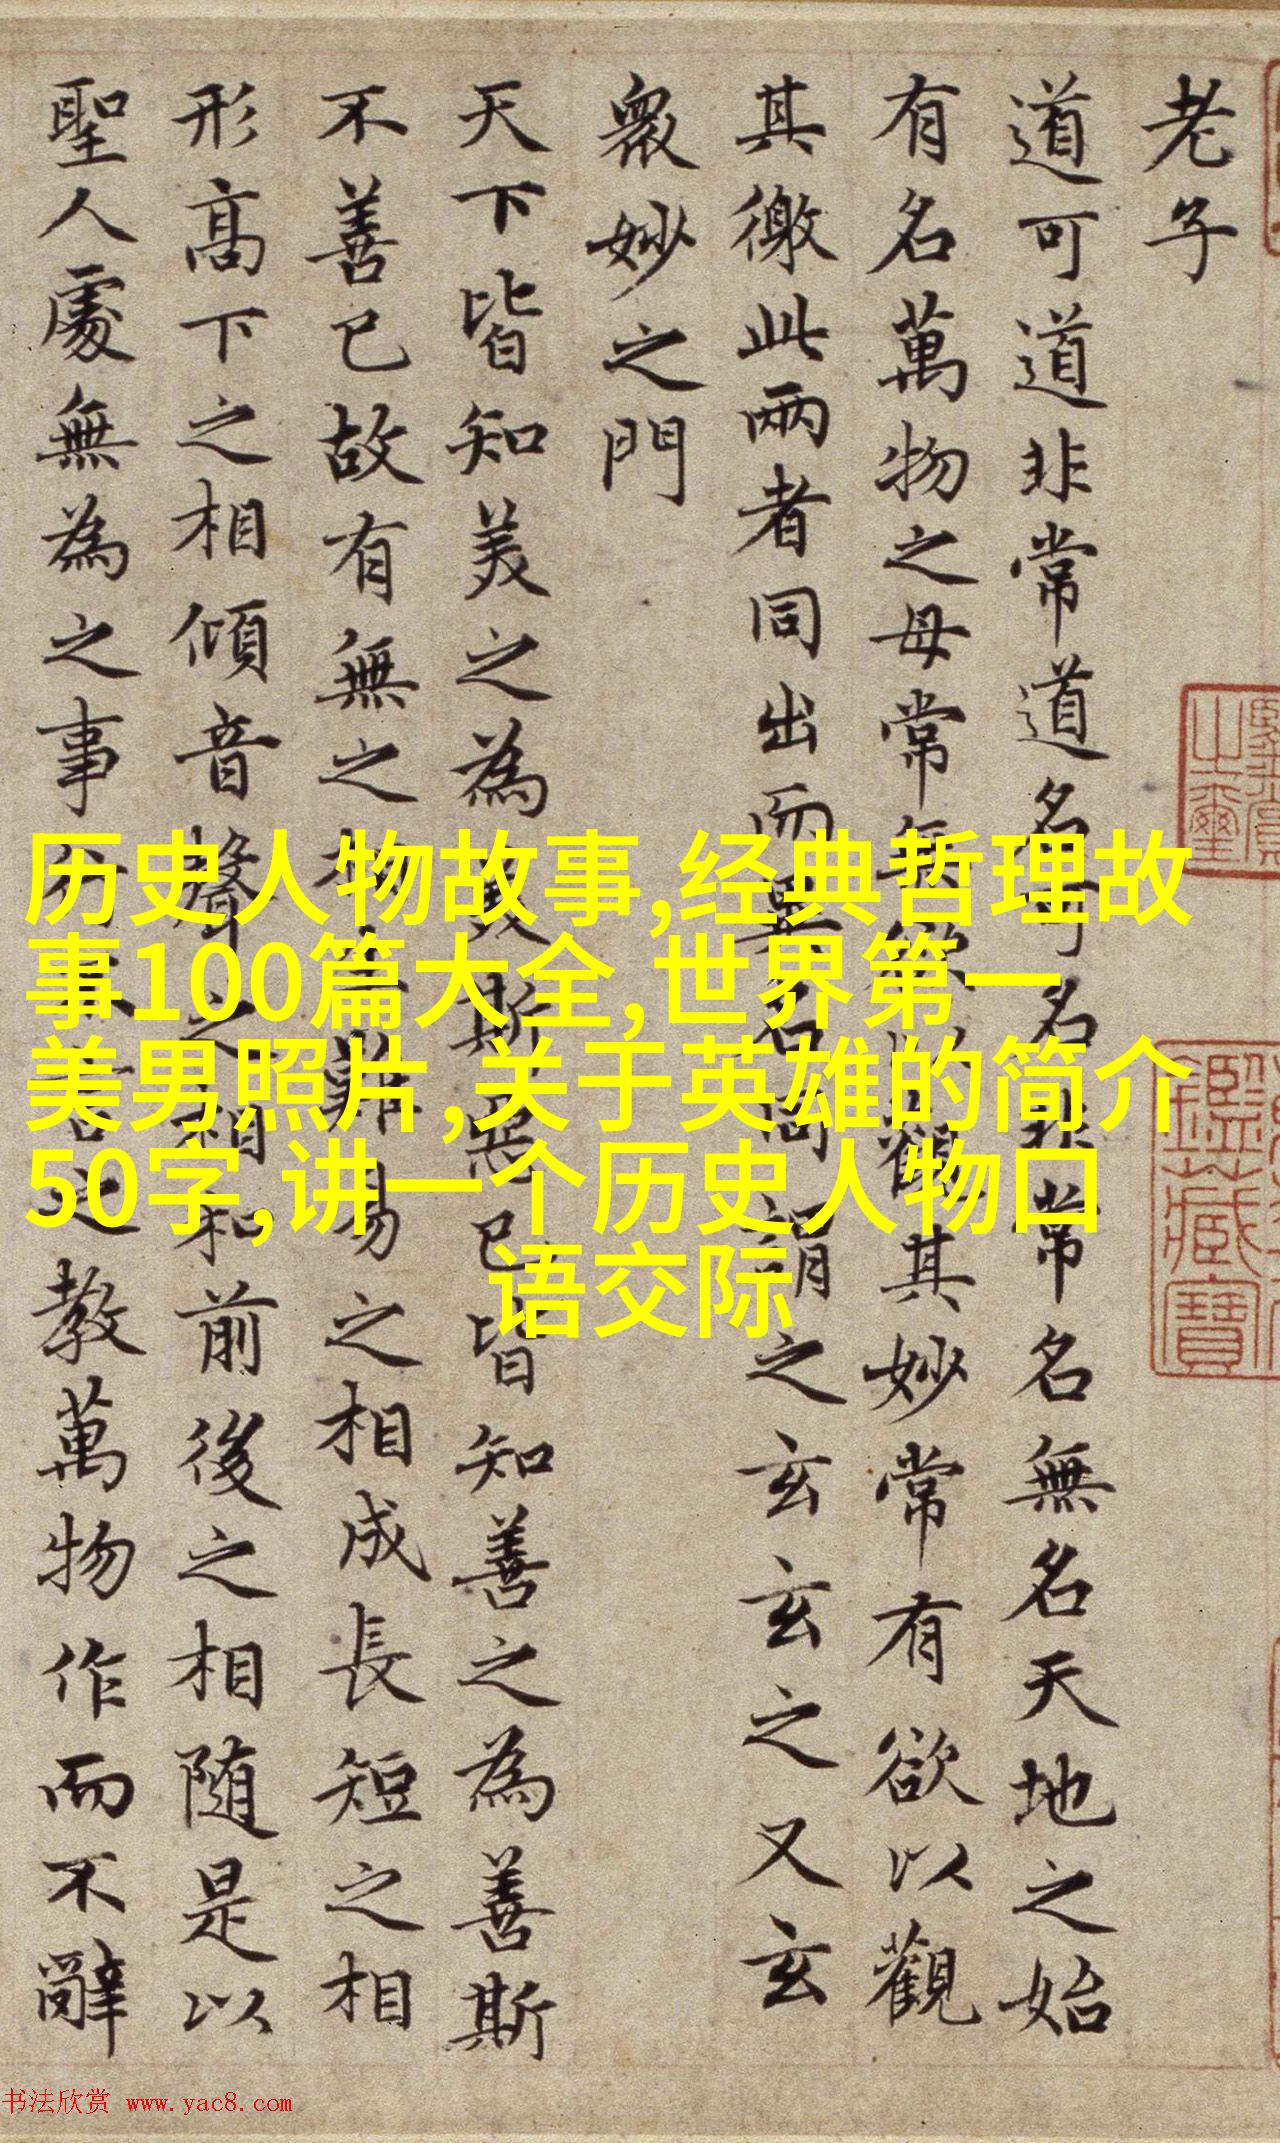 老子
道可道非常道名可名非常名無名天地之始
有名萬物之母常無欲以觀其妙常有欲以觀
其徼此兩者同出而異名同謂之玄玄之又玄
衆妙之門
天下皆知美之為美斯惡已皆知善之為善斯
不善已故有無之相生難易之相成長短之相
形高下之相傾音聲之相和前後之相随是以
聖人處無為之事行不言之教萬物作而不辭
历史人物故事,经典哲理故
事100篇大全,世界第一
美男照片,关于英雄的简介
50字,讲一个历史人物口
语交际
鑑藏寶
书法欣赏 www.yac8.com